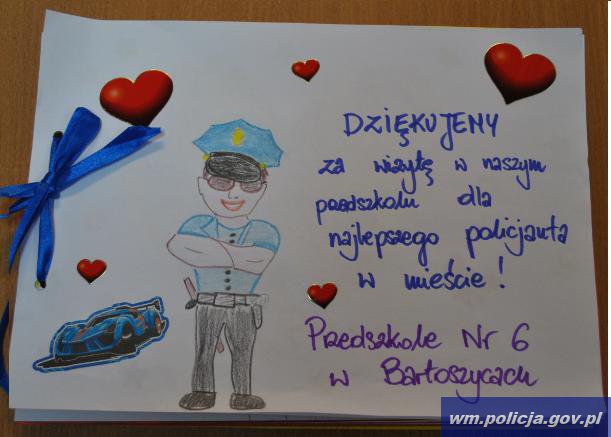 DZIĘKUJEMY
za wizytę w naszym
przedszkolu dla
najlepszego policjanta
w mieście!
Przedszkole Nr 6
w Bartoszycach
wm.policja.gov.pl